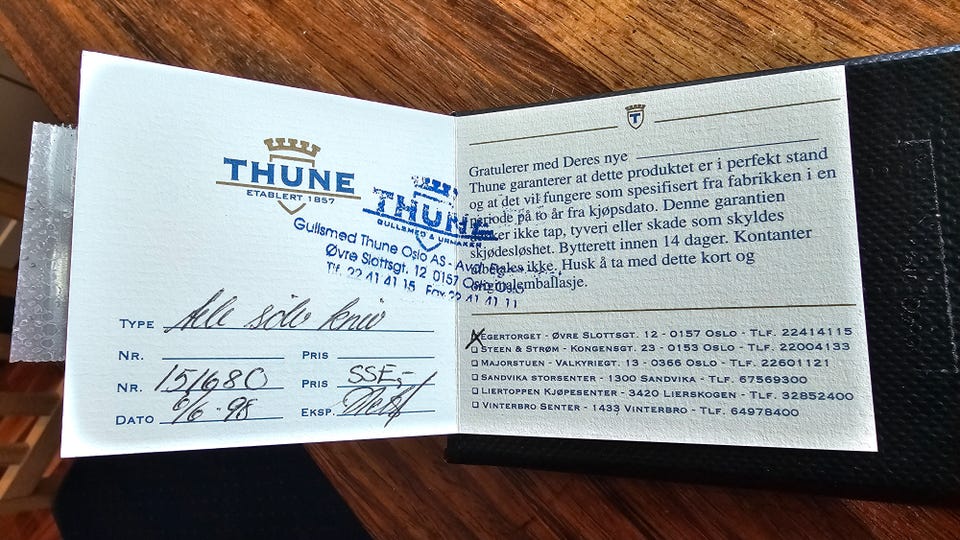 THUNE
ETABLERT 1857
THUNE
GULLSMED & URMAKER
Gullsmed Thune Oslo AS - Avd.
Øvre Slottsgt. 12 0157 Oslo
Tlf. 22 41 41 15 Fax 22 41 41 11
TYPE sølv kniv
NR. PRIS
NR. 151680 PRIS
DATO 6/6-98 EKSP.
T
Gratulerer med Deres nye
Thune garanterer at dette produktet er i perfekt stand
og at det vil fungere som spesifisert fra fabrikken i en
periode på to år fra kjøpsdato. Denne garantien
ikke tap, tyveri eller skade som skyldes
skjødesløshet. Bytterett innen 14 dager. Kontanter
ikke. Husk å ta med dette kort og
originalemballasje.
EGERTORGET - ØVRE SLOTTSGT. 12 - 0157 OSLO - TLF. 22414115
STEEN & STRØM - KONGENSGT. 23 - 0153 OSLO - TLF. 22004133
MAJORSTUEN - VALKYRIEGT. 13 - 0366 OSLO - TLF. 22601121
SANDVIKA STORSENTER - 1300 SANDVIKA - TLF. 67569300
LIERTOPPEN KJØPESENTER - 3420 LIERSKOGEN - TLF. 32852400
VINTERBRO SENTER - 1433 VINTERBRO - TLF. 64978400